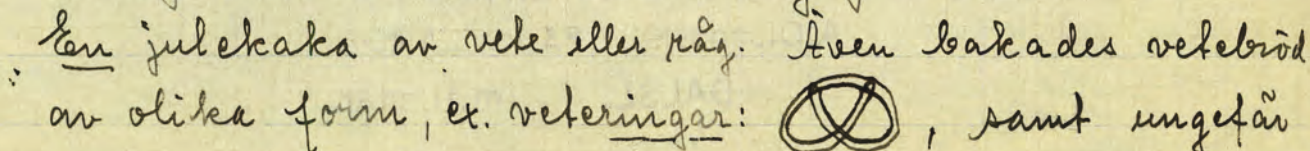 En julekaka av vete eller råg. Även bakades vetebröd
av olika form, ex. veteringar: , samt ungefär